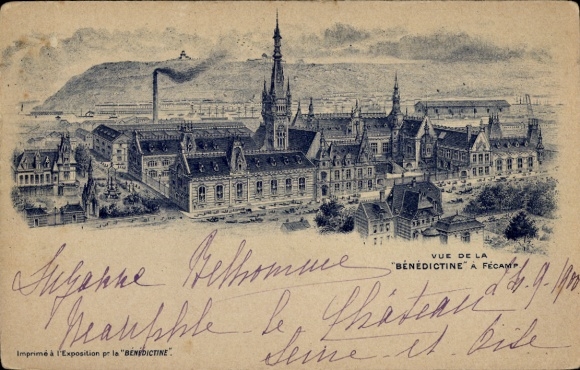 VUE DE LA
"BÉNÉDICTINE" A FÉCAMP
Suzanne Belhomme
Neauphle-le-Château
Seine-et-Oise
Imprimé à l'Exposition pr la "BÉNÉDICTINE".